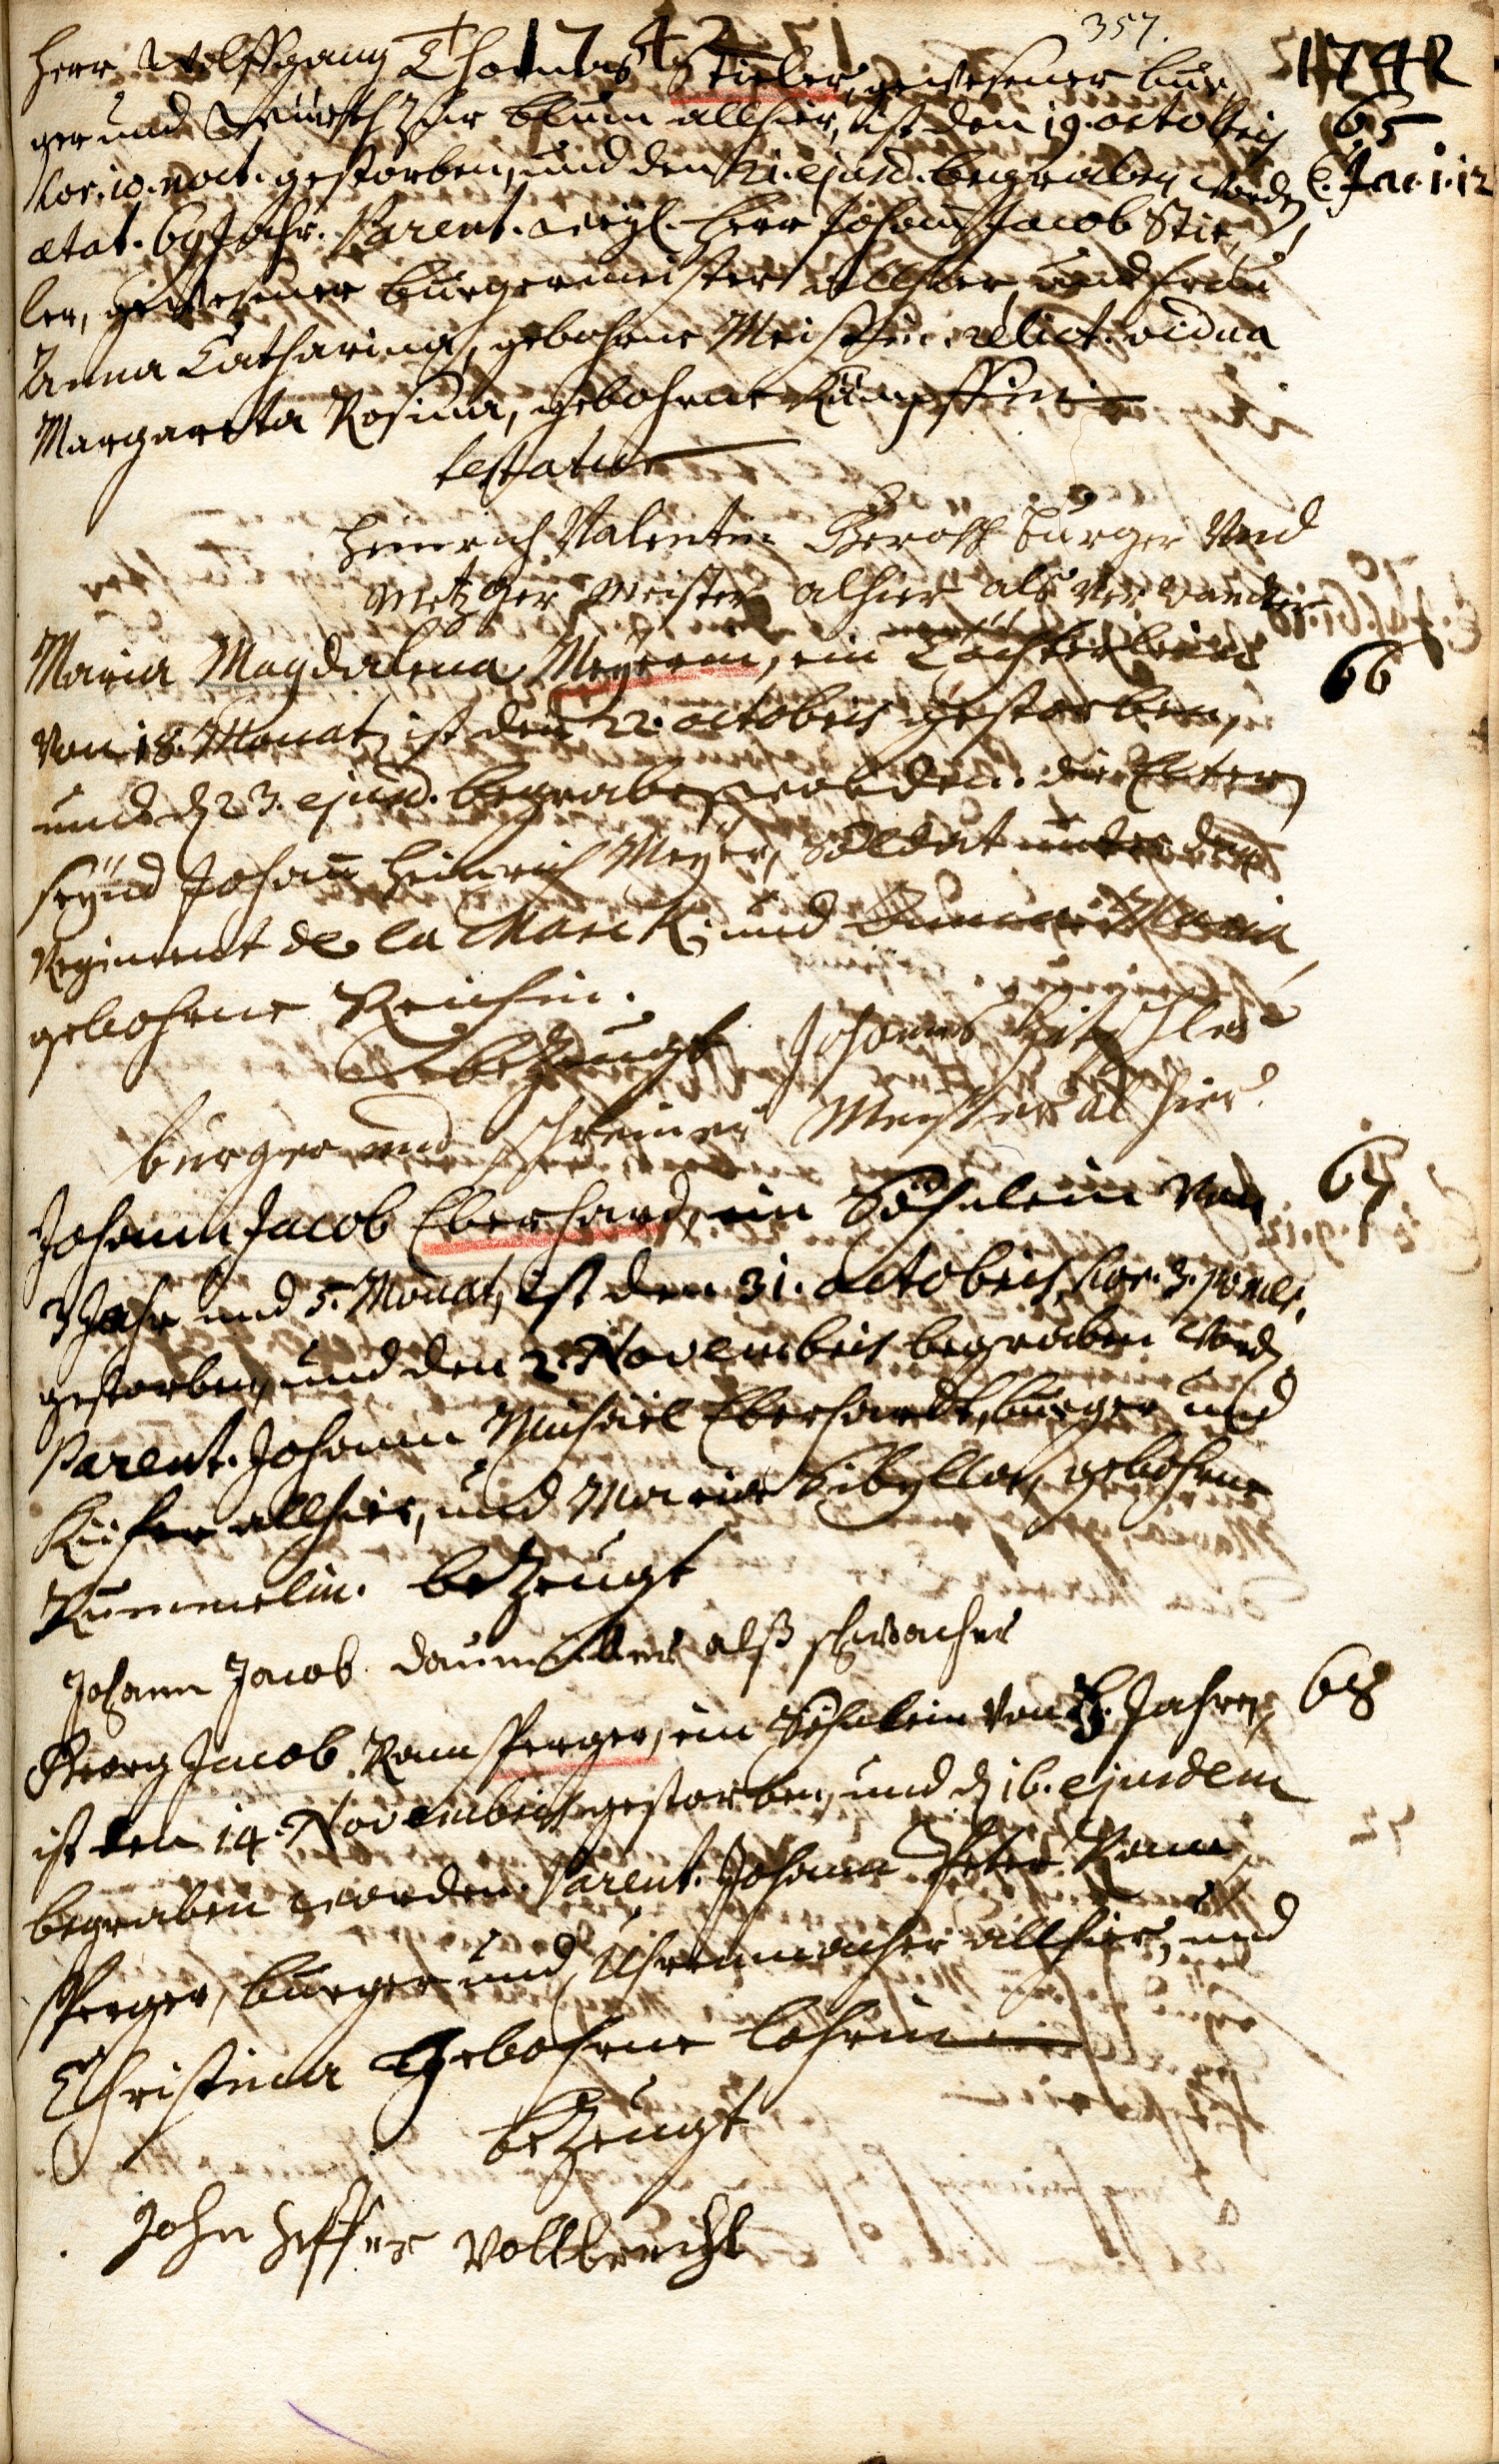 1742
357.
1742
Herr Wolffgang Thomas Stieler, gewesener bur,
ger und Würth zur blum allhier, ist den 19. octobris
65
hor. 10. noct. gestorben, und den 21. ejusd. begraben word.
E. Jac. 1. 12
ætat. 69 Jahr. Parent. weyl. Herr Johann Jacob Stie,
ler, gewesener burgermeister allhier, und Frau
Anna Catharina, gebohrne relict. vidua
Margareta Rosina, gebohrne Kämpffin
testatur
Heinrich Valentin Burger Und
Metzger Meister alhier als Verwandter
Maria Magdalena Meÿerin, ein Töchterlein
66
von 18. Monat, ist den 22. octobris gestorben,
und d. 23. ejusd. begraben worden. die Eltern
seÿnd Johann Heinrich Meÿer, Soldat unter dem
Regiment de la Marck, und Anna Maria
gebohrne Reichin.
bezeugt Johannes
burger und schreiner Meister al hier
Johann Jacob Eberhard, ein Söhnlein von
67
3 Jahr und 5. Monat, ist den 31. octobris, hor. 3. pomer.
gestorben, und den 2. Novembris begraben word.
Parent. Johann Michäel Eberhardt, burger und
Kiefer allhier, und Maria Sibylla, gebohrne
Rümmelin. bezeugt
Johann Jacob daumüller alß
Georg Jacob Ramsperger, ein Söhnlein von Jahren,
68
ist den 14. Novembris gestorben, und d. 16. ejusdem
begraben worden. Parent. Johann Peter Ram,
sperger, burger und Uhrenmacher allhier, und
Christina gebohrne Lohrin
bezeugt
John Vollbrecht